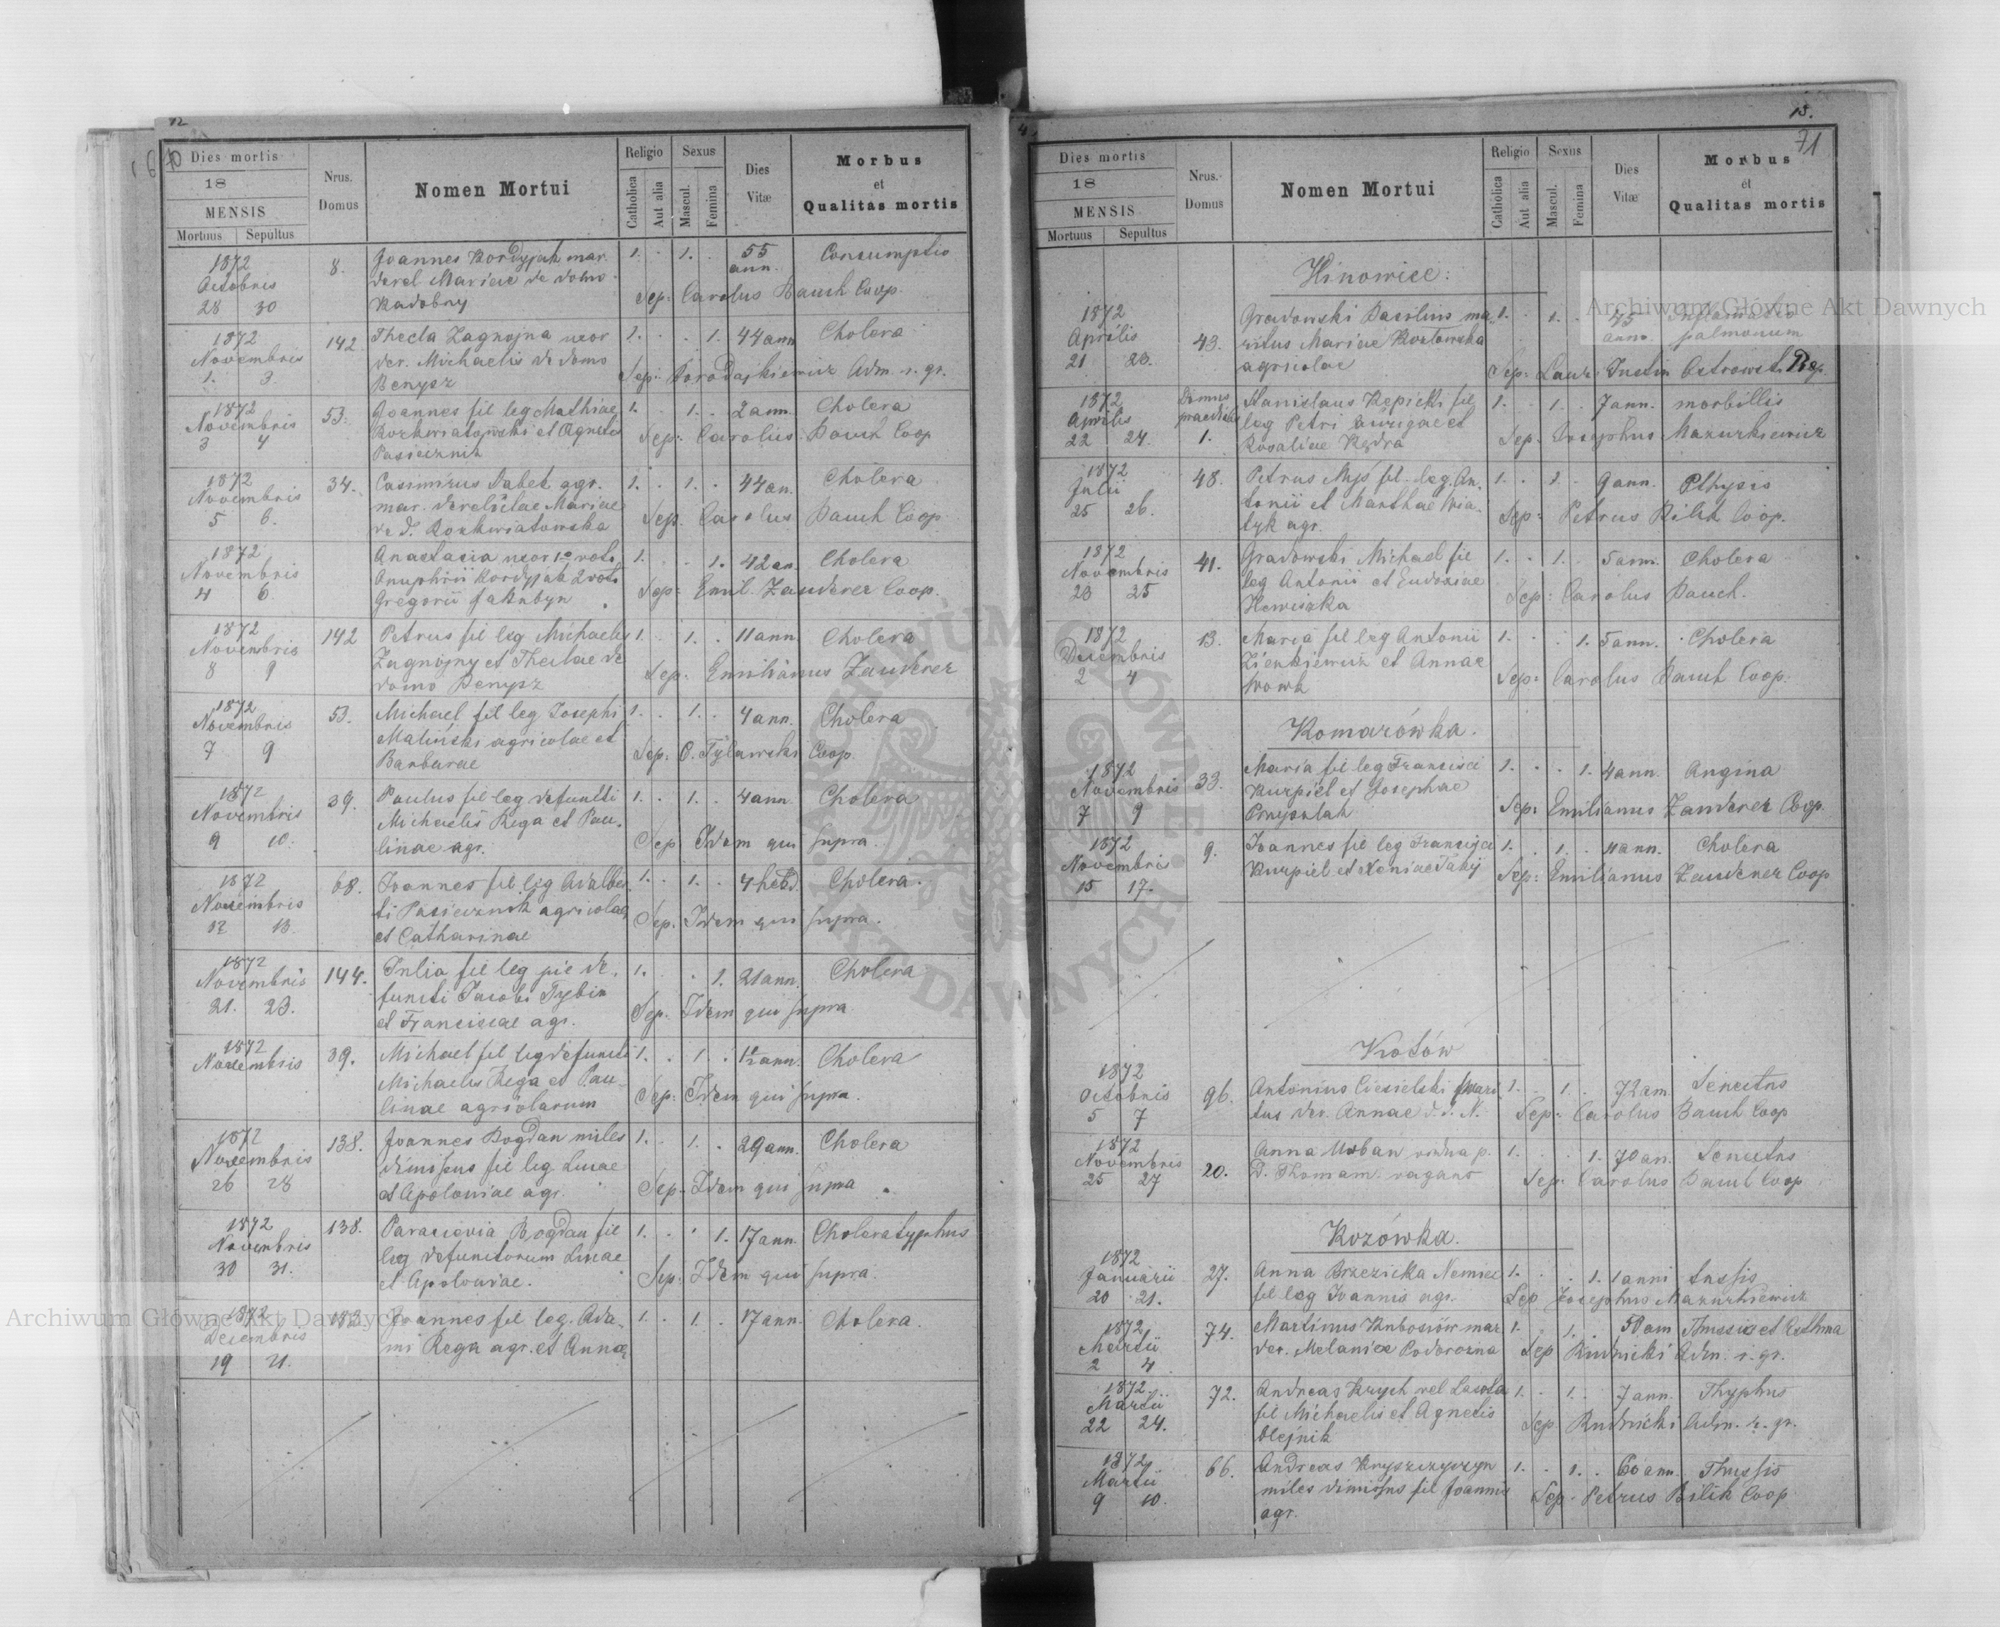 12
70
Dies mortis
18
MENSIS
Mortuus Sepultus
Nrus. Domus
Nomen Mortui
Religio
Catholica
Aut alia
Sexus
Mascul.
Femina
Dies Vitæ
Morbus
et
Qualitas mortis
1872 Octobris 28 30
8.
Joannes Kordyjak mar.
derel Mariae de domo
Radobny
1. 1. 55 ann. Consumptio
Sep: Carolus Bauch Coop.
1872 Novembris 1. 3.
142
Thecla Zagnojna uxor
der. Michaelis de domo
Benysz
1. 1. 44 ann Cholera
Sep: Adm. r. gr.
1872 Novembris 3 4
53.
Joannes fil leg Mathiae
Rozkwiatowski et Agnetis
Pasiecznik
1. 1. 2 ann. Cholera
Sep: Carolus Bauch Coop
1872 Novembris 5 6.
34.
Casimirus Dabet agr.
mar. derelictae Mariae
de d. Rozkwiatowska
1. 1. 44 an. Cholera
Sep. Carolus Bauch Coop
1872 Novembris 4 6.
Anastasia uxor 1o voto
Onuphrii Kordyjak 2 voto
Gregorii Jakubyn
1. 1. 42 an. Cholera
Sep: Emil. Zauderer Coop.
1872 Novembris 8 9
142
Petrus fil leg Michaelis
Zagnojny et Theclae de
domo Benysz
1. 1. 11 ann Cholera
Sep: Emilianus Zauderer
1872 Novembris 7 9
53.
Michael fil leg Josephi
Malinski agricolae et
Barbarae
1. 1. 4 ann. Cholera
Sep: O. Tylawski Coop.
1872 Novembris 9 10.
39.
Paulus fil leg defuncti
Michaelis Rega et Pau-
linae agr.
1. 1. 4 ann. Cholera
Sep Idem qui supra.
1872 Novembris 12 13.
68.
Joannes fil leg Adalber-
ti Pasiecznik agricolae
et Catharinae
1. 1. 4 hebd. Cholera.
Sep: Idem qui supra.
1872 Novembris 21. 23.
144.
Julia fil leg pie de-
functi Jacobi Tybin
et Franciscae agr.
1. 1. 21 ann. Cholera
Sep. Idem qui supra
1872 Novembris
39.
Michael fil leg defuncti
Michaelis Rega et Pau-
linae agricolarum
1. 1. ann. Cholera
Sep: Idem qui supra.
1872 Novembris 26 28
138.
Joannes Bogdan miles
dimissus fil leg. Lucae
et Apoloniae agr.
1. 1. 29 ann. Cholera
Sep. Idem qui supra
1872 Novembris 30 31.
138.
Parascevia Bogdan fil
leg defunctorum Lucae
et Apoloniae.
1. 1. 17 ann. Choleratyphus
Sep: Idem qui supra.
1872 Decembris 19 21.
183
Joannes fil leg. Ada-
mi Rega agr. et Annae
1. 1. 17 ann. Cholera.
13.
71
Dies mortis
18
MENSIS
Mortuus Sepultus
Nrus. Domus
Nomen Mortui
Religio
Catholica
Aut alia
Sexus
Mascul.
Femina
Dies Vitæ
Morbus
et
Qualitas mortis
Hinowice:
1872 Aprilis 21 23.
43.
Gradowski Basilius ma-
ritus Mariae Kozłowska
agricolae
1. 1. 45 ann. Inflamatio pulmonum
Sep: Laur: Justin Ostrowski
1872 Aprilis 22 24.
Domus praedialis 1.
Stanislaus Kępicki fil
leg Petri aurigae et
Rosaliae Kędra
1. 1. 7 ann. morbillis
Sep: Josephus Mazurkiewicz
1872 Julii 25 26.
48.
Petrus Myś fil. leg. An-
tonii et Marthae Wia-
tyk agr.
1. 1. 9 ann. Pthysis
Sep: Petrus Bilik Coop.
1872 Novembris 23 25
41.
Gradowski Michael fil
leg Antonii et Eudoxiae
Hewiszka
1. 1. 5 ann. Cholera
Sep: Carolus Bauch.
1872 Decembris 2 4
13.
Maria fil leg Antonii
Zienkiewicz et Annae
Wowk
1. 1. 5 ann. Cholera
Sep: Carolus Bauch Coop.
Komarówka.
1872 Novembris 7 9
33.
Maria fil leg Francisci
Kurpiel et Josephae
Przysztak
1. 1. 4 ann. Angina
Sep: Emilianus Zauderer Coop.
1872 Novembris 15 17.
9.
Joannes fil leg Francisci
Kurpiel et Xeniae
1. 1. 11 ann. Cholera
Sep: Emilianus Zauderer Coop
Kotów
1872 Octobris 5 7
96.
Antonius Ciesielski mari-
tus der. Annae d. d. N.
1. 1. 72 ann. Senectus
Sep: Carolus Bauch Coop
1872 Novembris 25 27
20.
Anna Urban vidua p.
D. Thomam. vagans
1. 1. 70 an. Senectus
Sep. Carolus Bauch Coop
Kozówka.
1872 Januarii 20 21.
27.
Anna Brzezicka Niemiec
fil leg Joannis agr.
1. 1. 1 anni tussis
Sep Josephus Mazurkiewicz
1872 Martii 2 4
74.
Martinus Kubosiów mar
der. Melaniae Podorozna
1. 1. 50 ann Thussis et Asthma
Sep Rudnicki Adm. r. gr.
1872. Martii 22 24.
72.
Andreas Krych vel Lasota
fil Michaelis et Agnetis
Olejnik
1. 1. 7 ann. Thyphus
Sep Rudnicki Adm. r. gr.
1872 Martii 9 10.
66.
Andreas Kryszczyszyn
miles dimissus fil Joannis
agr.
1. 1. 60 ann. Thussis
Sep. Petrus Bilik Coop
Archiwum Główne Akt Dawnych
Archiwum Główne Akt Dawnych
ARCHIWUM GŁÓWNE AKT DAWNYCH